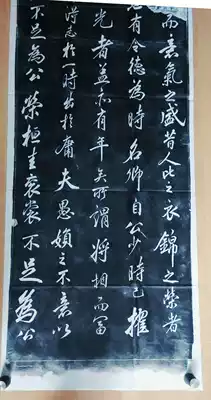 而意氣之盛昔人比之衣錦之榮者
有令德為時名卿自公少時已擢
光者盖亦有年矣所謂將相而冨
得志於一時出於庸夫愚婦之不意以
不足為公榮桓圭衮裳不足為公